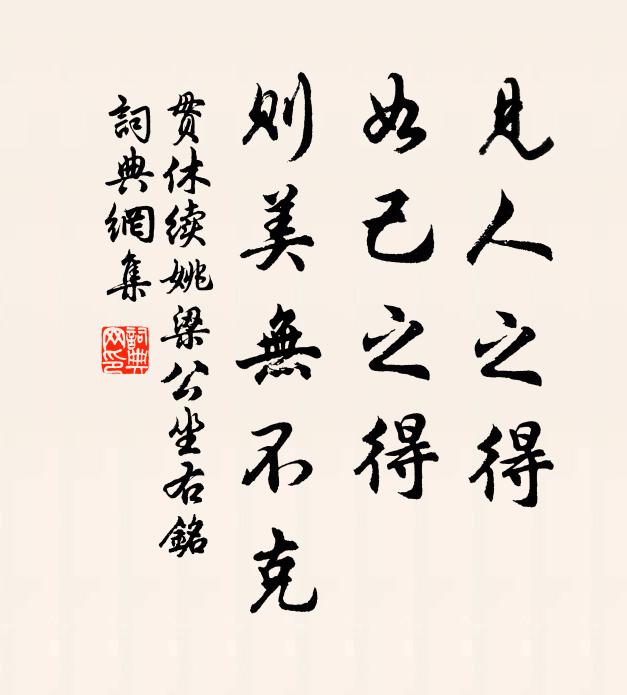 見人之得
如己之得
則美無不克
贯休续姚梁公坐右銘
詞典網集
詞典网印